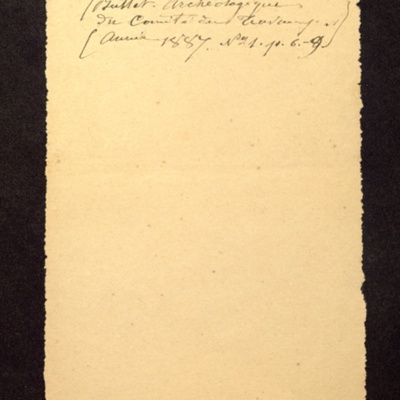 (Bullet. Archéologique
du Comité des Travaux
(année 1887. Nº 1. p. 6-9)